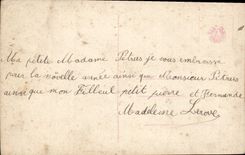 Ma petite Madame Petrus je vous embrasse
pour la novelle année ainsi que Monsieur Petrus
ainsi que mon filleul petit pierre et Fernande
Madeleine